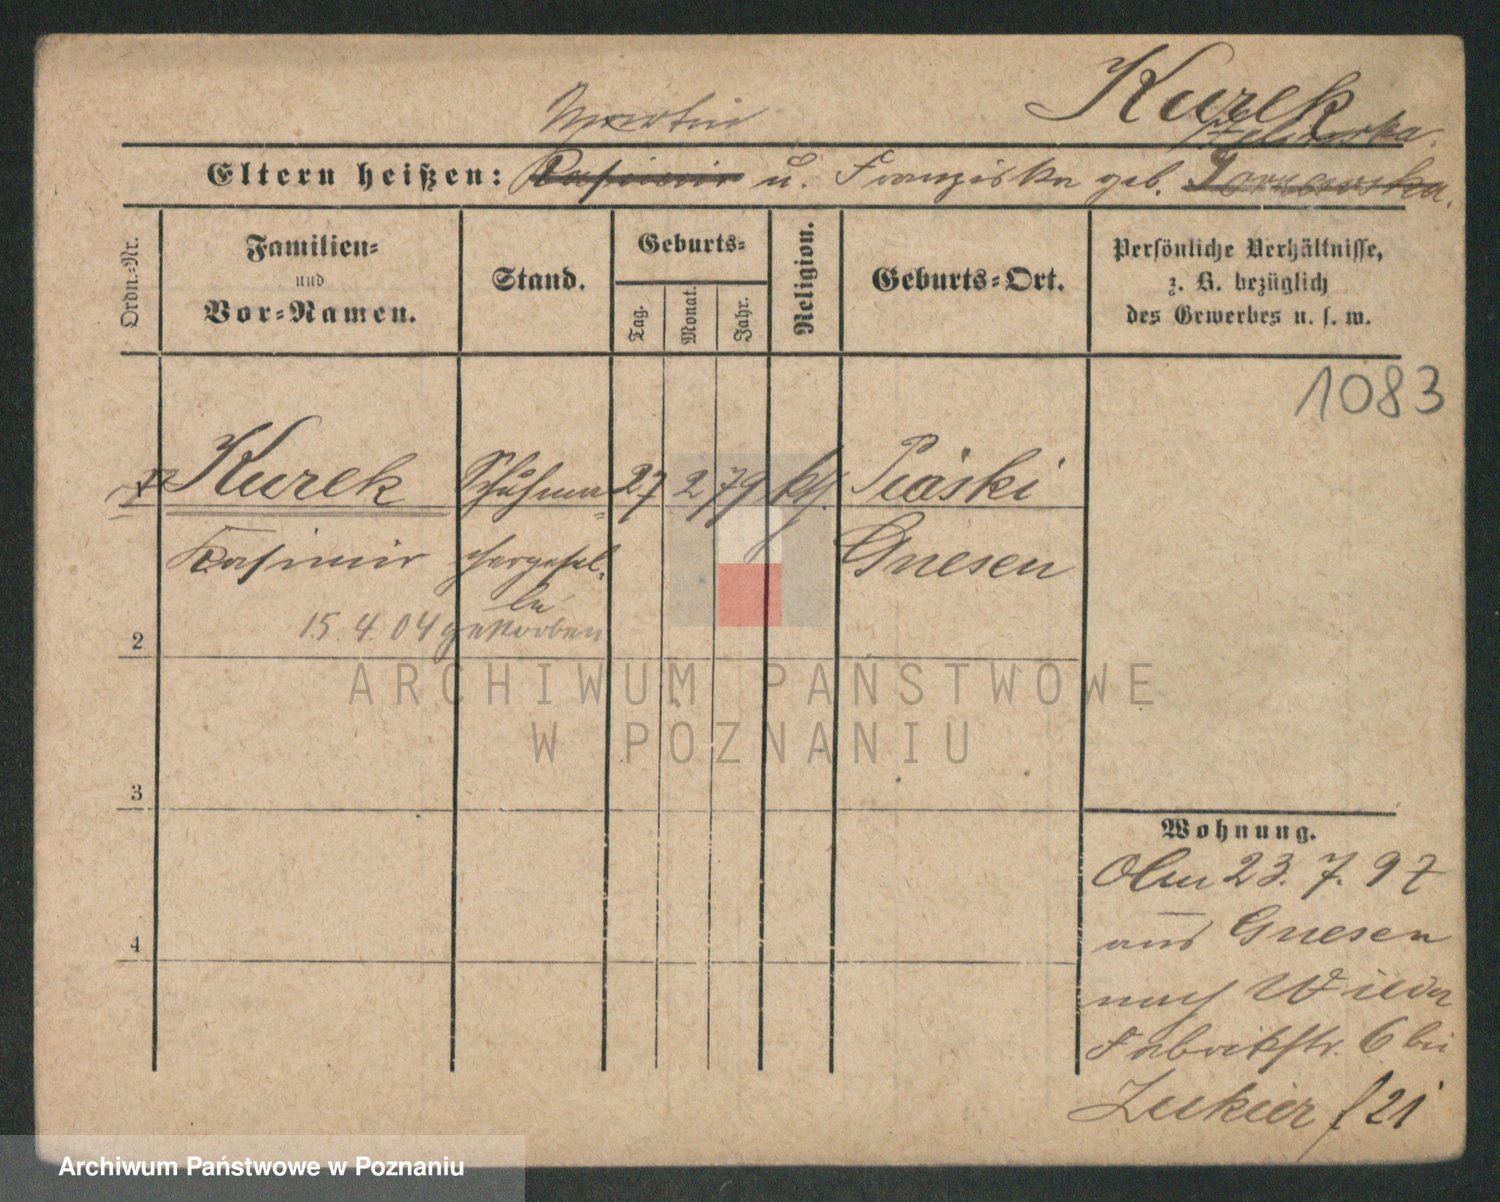 Kurek
Martin
Eltern heißen: Kasimir u. Franziska geb.
Ordn.-Nr.
Familien-
und
Vor-Namen.
Stand.
Geburts-
Tag.
Monat.
Jahr.
Religion.
Geburts-Ort.
Persönliche Verhältnisse,
z. B. bezüglich
des Gewerbes u. s. w.
1083
Kurek Schuhma- 27 2 79 kth. Piaski
Kasimir chergesel- Gnesen
le
15. 4. 04 gestorben
2
3
4
Wohnung.
Am 23. 7. 97
aus Gnesen
nach Wilda
Fabrikstr. 6 bei
Zukier f 21
ARCHIWUM PAŃSTWOWE
W POZNANIU
Archiwum Państwowe w Poznaniu